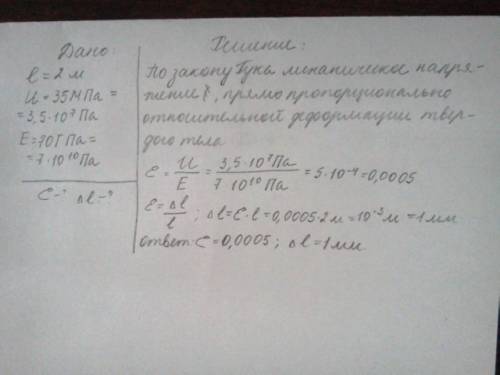 Дано:
l = 2 м
U = 35 МПа =
= 3,5·10⁷ Па
E = 70 ГПа =
= 7·10¹⁰ Па
ε - ? Δl - ?
Решение:
По закону Гука механическое напря-
жение, прямо пропорционально
относительной деформации твер-
дого тела
ε = U/E = 3,5·10⁷ Па / 7·10¹⁰ Па = 5·10⁻⁴ = 0,0005
ε = Δl/l ; Δl = ε·l = 0,0005·2 м = 10⁻³ м = 1 мм
ответ: ε = 0,0005 ; Δl = 1 мм.